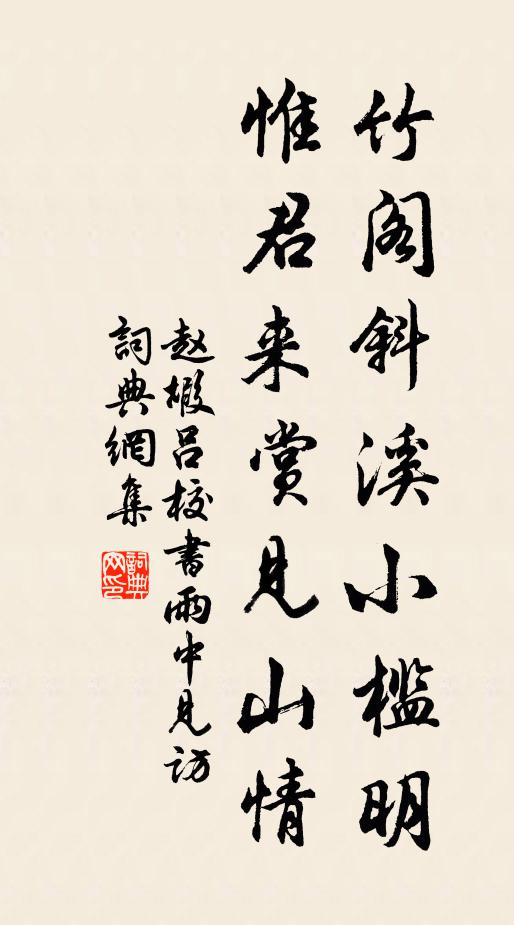 竹阁斜溪小槛明
惟君来赏見山情
赵嘏吕校書雨中見访
詞典網集
詞典
网印